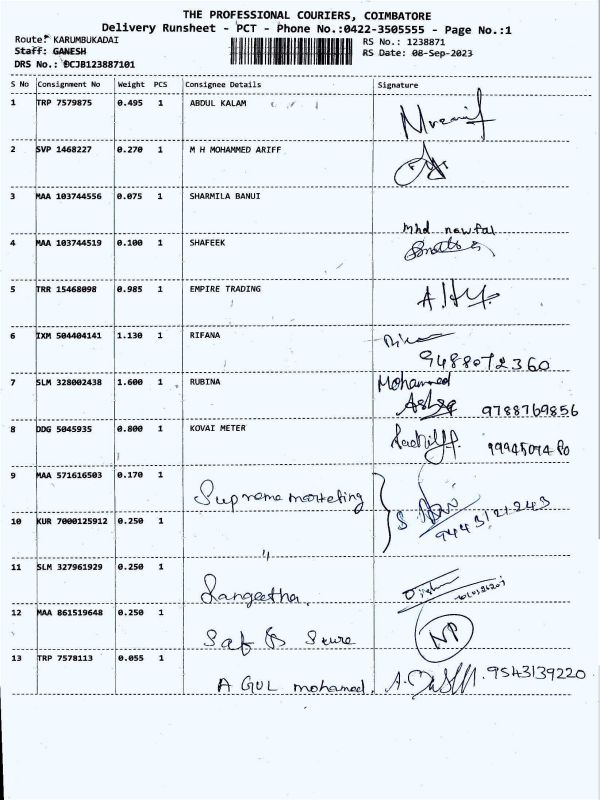 THE PROFESSIONAL COURIERS, COIMBATORE
Delivery Runsheet - PCT - Phone No.:0422-3505555 - Page No.:1
Route: KARUMBUKADAI
RS No.: 1238871
Staff: GANESH
RS Date: 08-Sep-2023
DRS No.: DCJB123887101
S No Consignment No Weight PCS Consignee Details Signature
1 TRP 7579875 0.495 1 ABDUL KALAM
2 SVP 1468227 0.270 1 M H MOHAMMED ARIFF
3 MAA 103744556 0.075 1 SHARMILA BANUI
mhd nowfal
4 MAA 103744519 0.100 1 SHAFEEK
5 TRR 15468098 0.985 1 EMPIRE TRADING
6 IXM 504404141 1.130 1 RIFANA
9488072360
7 SLM 328002438 1.600 1 RUBINA Mohammed
9788769856
8 DDG 5045935 0.800 1 KOVAI METER
9 MAA 571616503 0.170 1
Supreme marketing
10 KUR 7000125912 0.250 1
9443121243
"
11 SLM 327961929 0.250 1
Sangeetha.
12 MAA 861519648 0.250 1
NP
13 TRP 7578113 0.055 1
A GUL mohamed. 9543139220